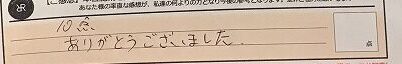 あなた様の率直な感想が、私達の何よりの力となり今後の参考となります。
10点
ありがとうございました。
点